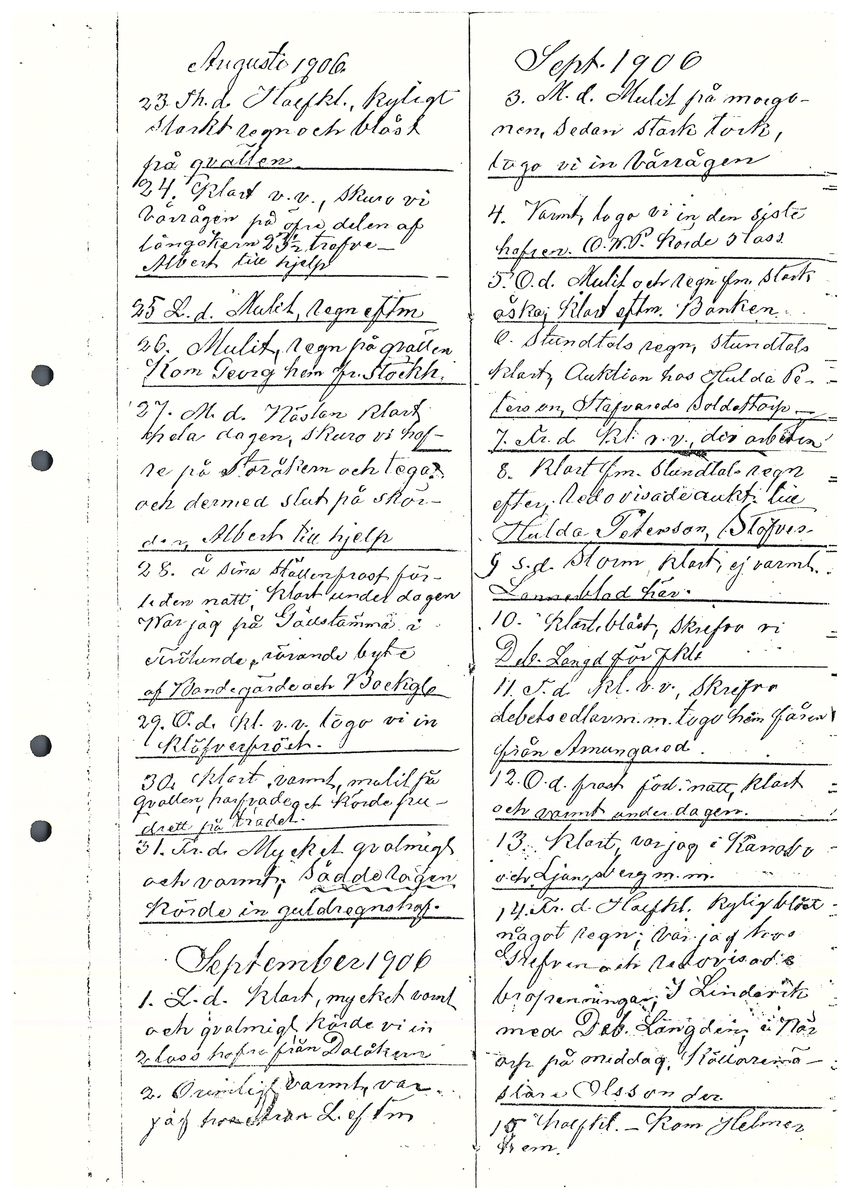 Augusti 1906.
23. Th. d. Halfkl., kyligt
starkt regn och blåst
på qvällen
24. Klart v.v., skuro vi
vårrågen på öfre delen af
långåkern 23½ trafve
Albert till hjelp
25 L. d. Mulit, regn eftm
26. Mulit, regn på qvällen
Kom Georg hem fr. Stockh.
27. M. d. Nästan klart
hela dagen, skuro vi haf-
re på Storåkern och
och dermed slut på skör-
den, Albert till hjelp
28. å sina ställen frost för-
leden natt, klart under dagen
War jag på
rörande byte
af Bandegärde och
29. O. d. kl. v.v. togo vi in
klöfverfröet.
30. Klart, varmt, mulit på
qvällen, körde
på trädet.
31. Fr. d. Mycket qvalmigt
och varmt, Sådde rågen
körde in guldregnshaf.
September 1906
1. L. d. Klart, mycket varmt
och qvalmigt, körde vi in
2 lass hafre från Dalåkern
2. Orimligt varmt, var
jag L. eftm
Sept. 1906
3. M. d. Mulit på morgo-
nen, sedan stark tork,
togo vi in vårrågen
4. Varmt, togo vi in den siste
hafren. O.W.P. körde 3 lass.
5. O. d. Mulit och regn fm. stark
åska, klart eftm. Banken.
6. Stundtals regn, stundtals
klart, Auktion hos Hulda Pe-
terson, Stafvareds Soldattorp
7. Fr. d. kl. v.v., div. arbeten
8. Klart fm. stundtals regn
efter, redovisade aukt. till
Hulda Peterson,
9 S. d. Storm, klart, ej varmt.
Lannerblad här.
10. Klart, blåst, skrefvo vi
Deb. Längd för
11. T. d. kl. v.v., skrefvo
debetsedlar m.m. togo hem fåren
från Amungared.
12. O. d. frost förl. natt, klart
och varmt under dagen.
13. Klart, var jag i
och Ljungsberg m.m.
14. Fr. d. Halfkl. kylig blåst
något regn, var jag hos
Grefven och redovisade
bropenningar, J Linderik
med Deb. Längden, i
på middag, Källaremä-
stare Olsson der.
15 Halfkl. – Kom Helmer
hem.